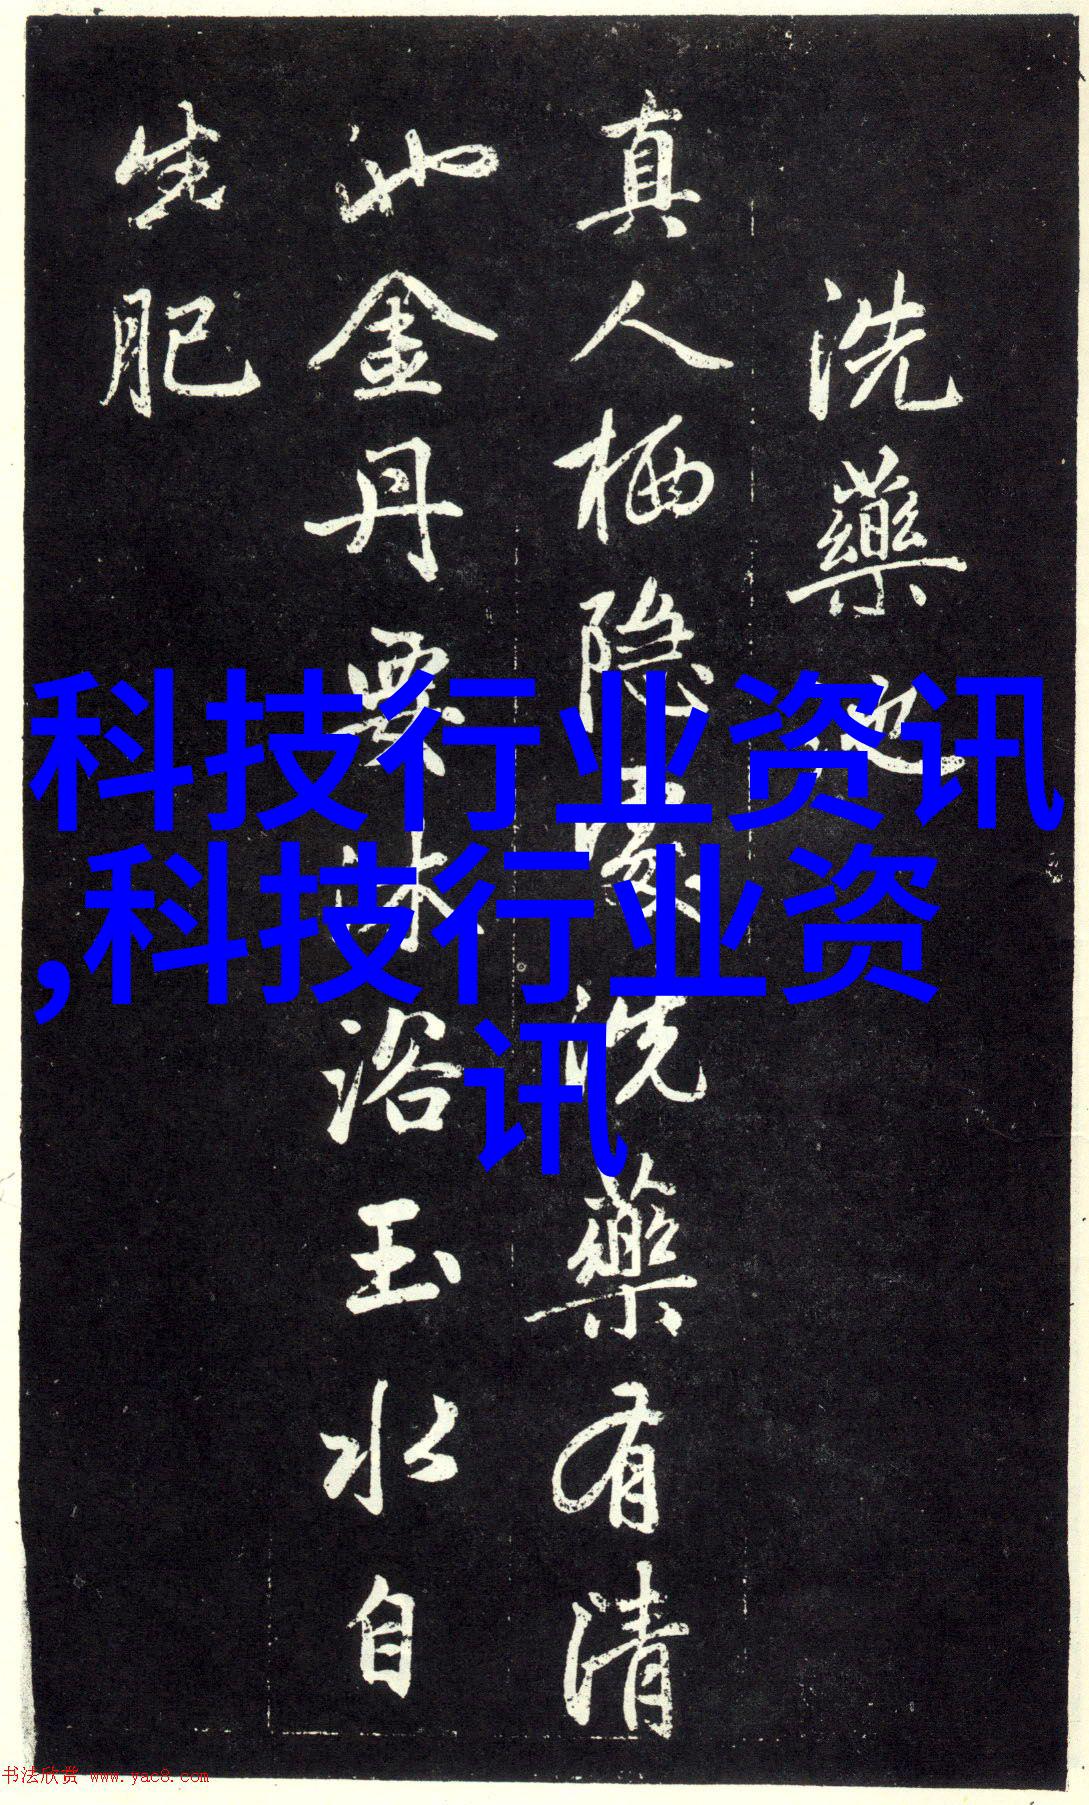 洗藥池
真人栖隱洗藥有清
池金丹要沐浴玉水自
生肥
科技行业资讯
,科技行业资
讯
书法欣赏 www.yac8.com